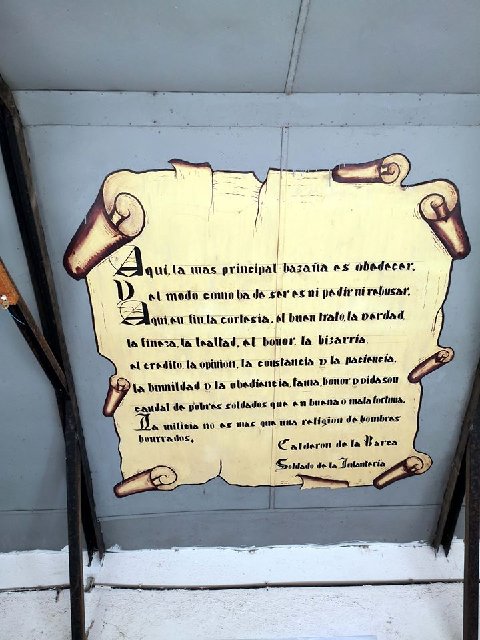 Aquí, la mas principal hazaña es obedecer.
Y el modo como ha de ser es ni pedir ni rehusar.
Aquí en fin, la cortesia, el buen trato, la verdad,
la fineza, la lealtad, el honor, la bizarria,
el credito, la opinion, la constancia y la paciencia,
la humildad y la obediencia, fama, honor y vida son
caudal de pobres soldados que en buena o mala fortuna.
La milicia no es mas que una religion de hombres
honrados.
Calderon de la Barca
Soldado de la Infanteria